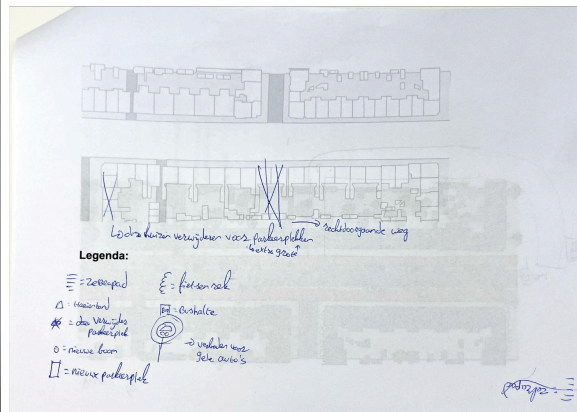 ↳ deze huizen verwijderen voor parkeerplekken
↳ extra grote
→ rechtdoorgaande weg
Legenda:
= zebrapad
= fietsenrek
= Haaientand
= Bushalte
= verwijder
parkeerplek
→ verboden voor
gele auto's
o = nieuwe boom
= nieuwe parkeerplek